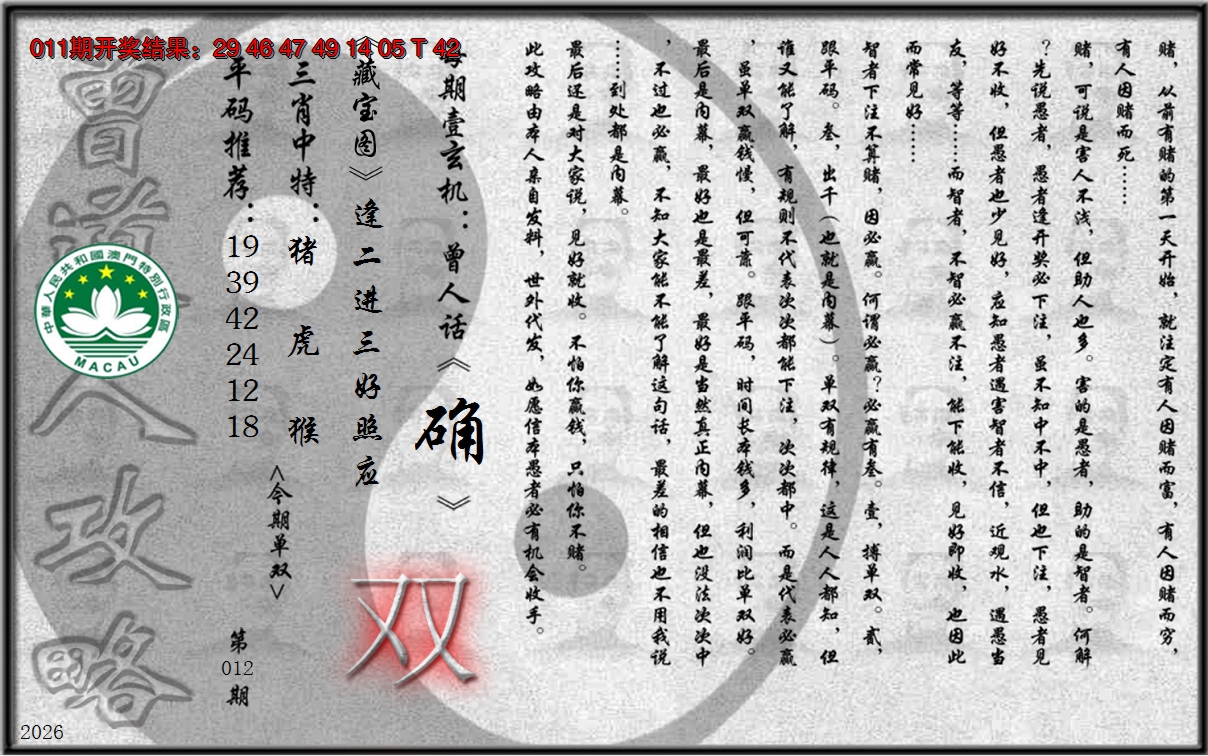 011期开奖结果：29 46 47 49 14 05 T 42
赌，从前有赌的第一天开始，就注定有人因赌而富，有人因赌而穷，
有人因赌而死……
赌，可说是害人不浅，但助人也多。害的是愚者，助的是智者。何解
？先说愚者，愚者逢开奖必下注，虽不知中不中，但也下注，愚者见
好不收，但愚者也少见好，应知愚者遇害智者不信，近观水，遇愚当
友，等等……而智者，不智必赢不注，能下能收，见好即收，也因此
而常见好……
智者下注不算赌，因必赢。何谓必赢？必赢有叁。壹，搏单双。贰，
跟平码。叁，出千（也就是内幕）。单双有规律，这是人人都知，但
谁又能了解，有规则不代表次次都能下注，次次都中。而是代表必赢
，虽单双赢钱慢，但可靠。跟平码，时间长本钱多，利润比单双好。
最后是内幕，最好也是最差，最好是当然真正内幕，但也没法次次中
，不过也必赢，不知大家能不能了解这句话，最差的相信也不用我说
……到处都是内幕。
最后还是对大家说，见好就收。不怕你赢钱，只怕你不赌。
此攻略由本人亲自发料，世外代发，如愿信本愚者必有机会收手。
每期壹玄机：曾人话《确》
《藏宝图》逢二进三好照应
双
三肖中特：猪 虎 猴
<今期单双>
平码推荐：
19
39
42
24
12
18
第
012
期
曾道人攻略
中華人民共和國澳門特別行政區
MACAU
2026